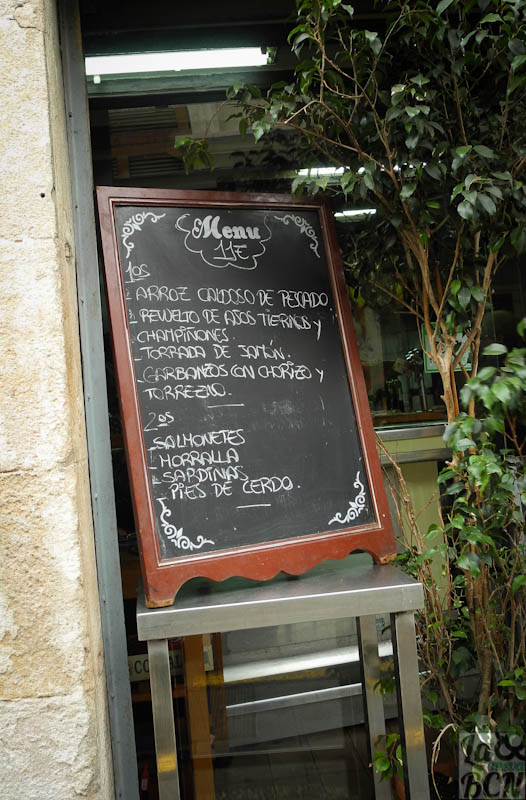 Menu
11€
1os
- ARROZ CALDOSO DE PESCADO
- REVUELTO DE AJOS TIERNOS y
CHAMPIÑONES.
- TORRADA DE JAMÓN.
- GARBANZOS CON CHORIZO y
TORREZNO.
2os
- SALMONETES
- MORRALLA
- SARDINAS
- PIES DE CERDO.
La &
BCN